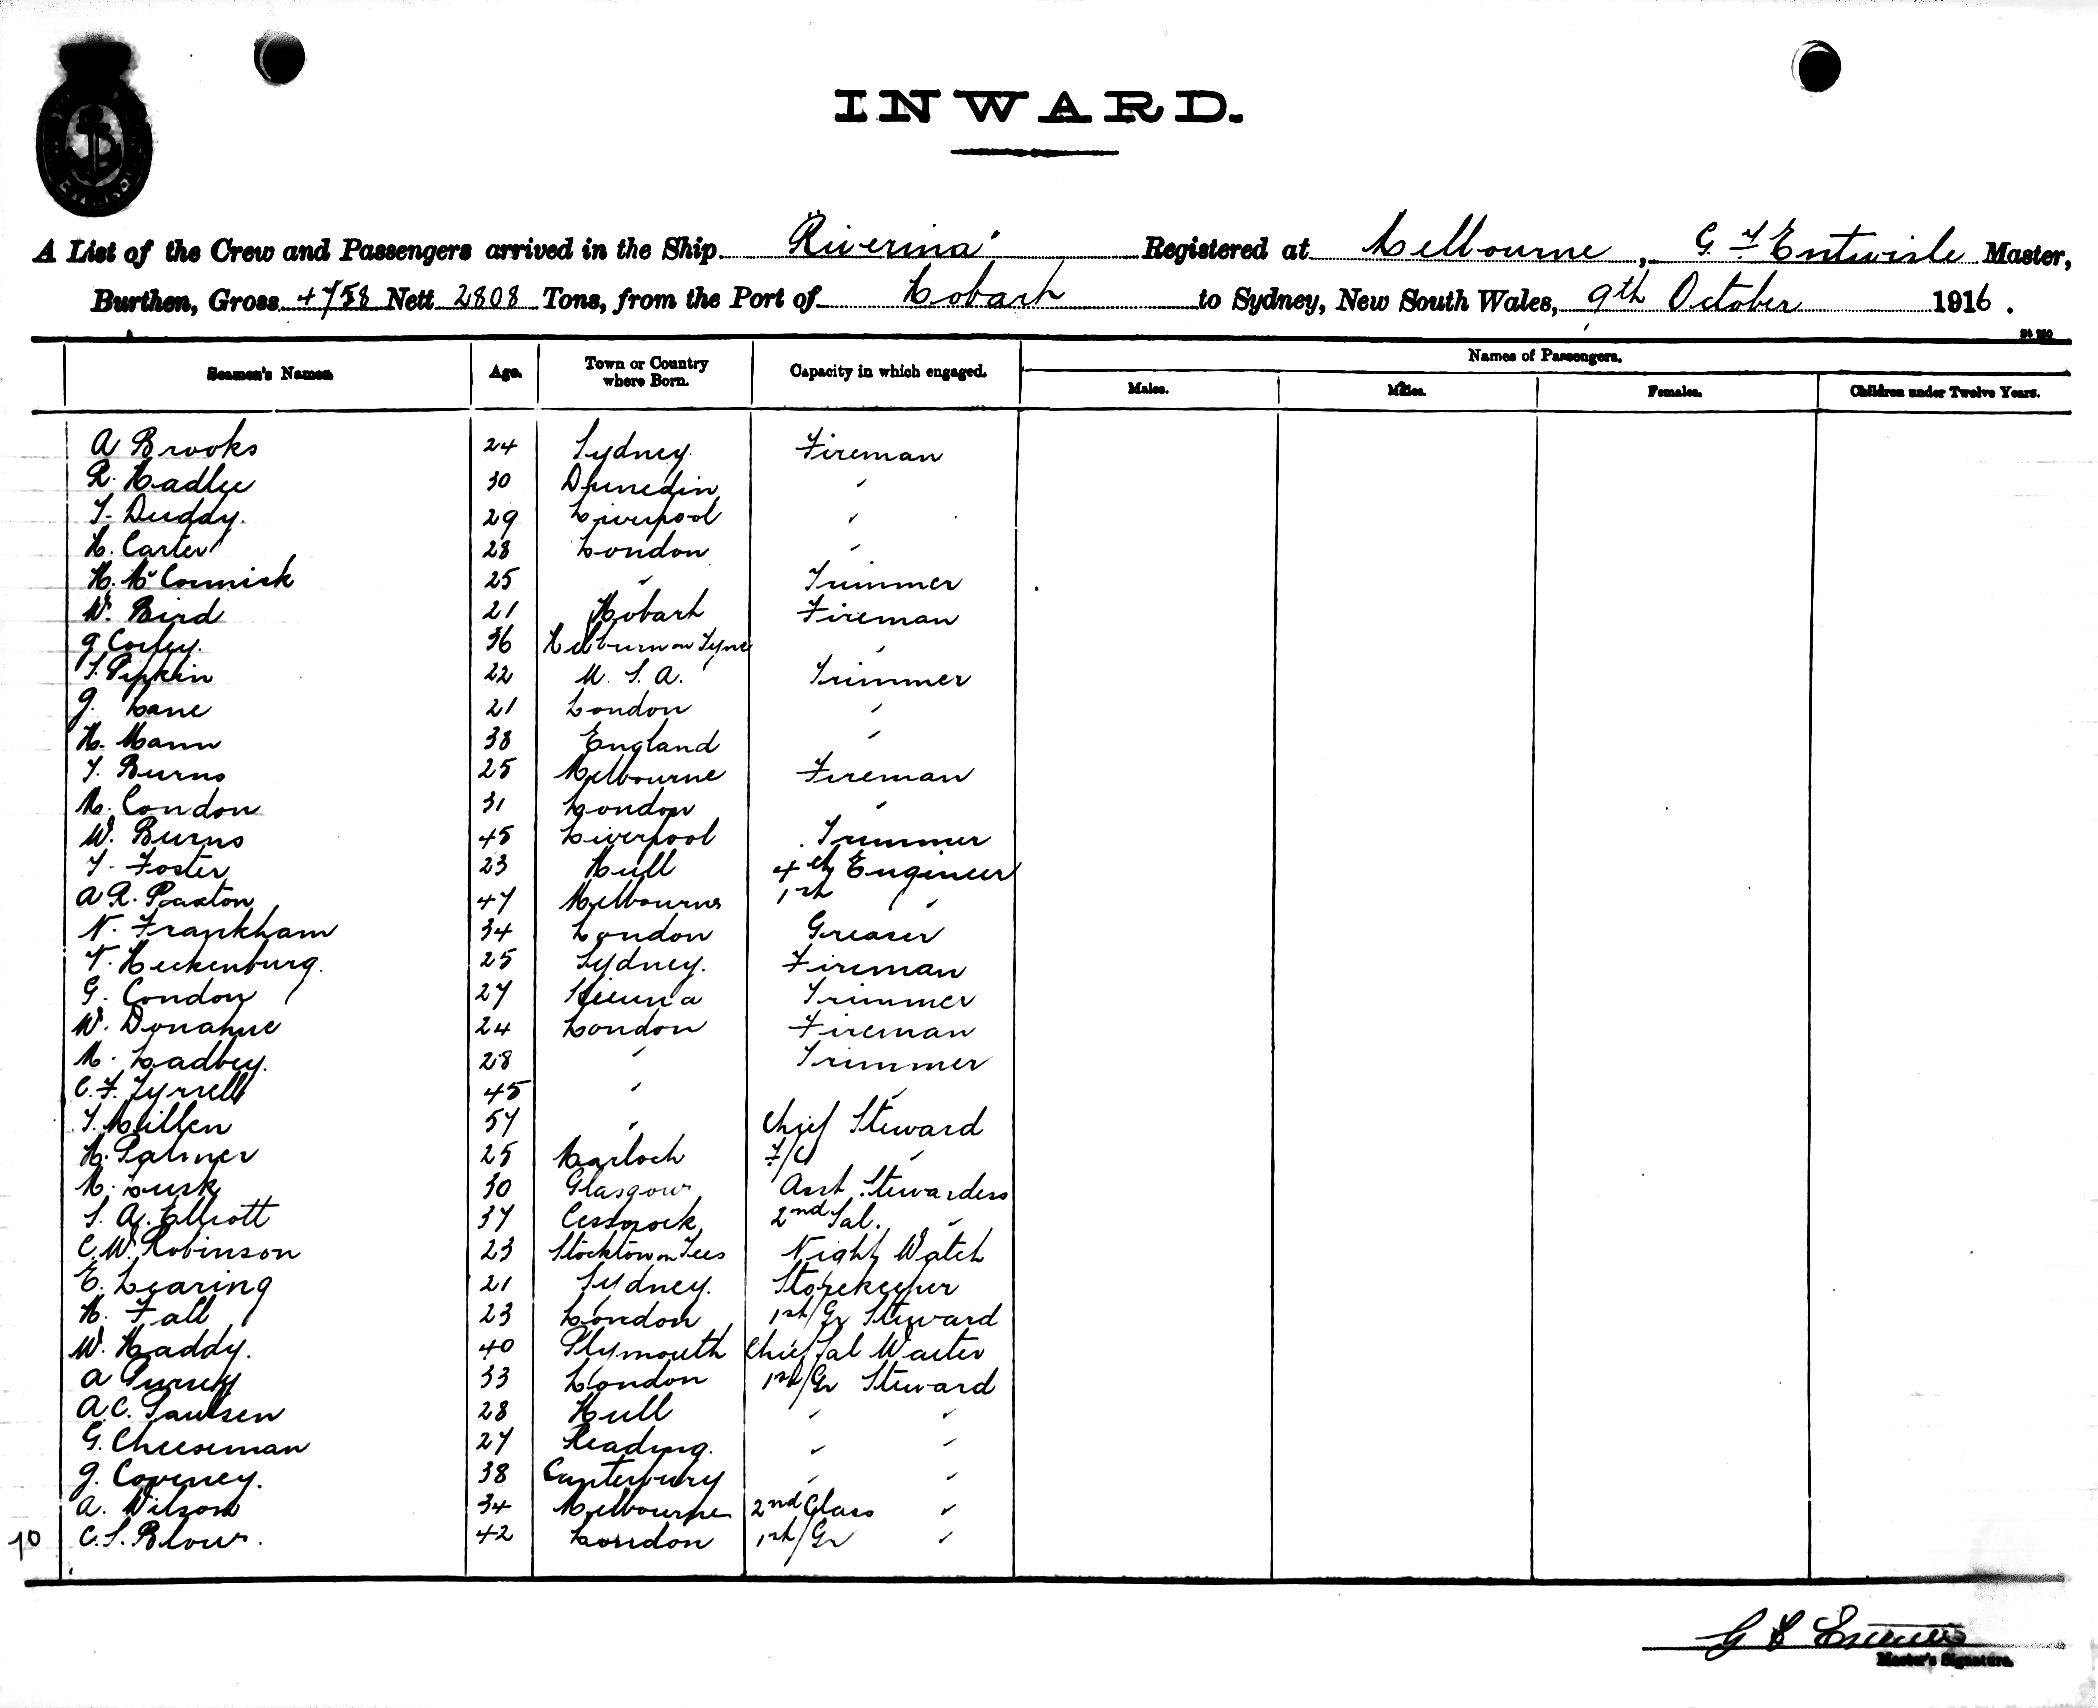 INWARD.
A List of the Crew and Passengers arrived in the Ship "Riverina" Registered at Melbourne, G. F. Entwisle Master,
Burthen, Gross 4758 Nett 2808 Tons, from the Port of Hobart to Sydney, New South Wales, 9th October 1916.
Seamen's Names Age. Town or Country where Born. Capacity in which engaged. Names of Passengers.
Males. Males. Females. Children under Twelve Years.
A Brooks 24 Sydney Fireman
R. Hadlee 30 Dunedin "
T. Duddy. 29 Liverpool "
H. Carter 28 London "
H. McCormick 25 " Trimmer
W. Bird 21 Hobart Fireman
36 Hebburn on Tyne "
S. Pipkin 22 U. S. A. Trimmer
J. Lane 21 London "
H. Mann 38 England "
T. Burns 25 Melbourne Fireman
M. Condon 31 London "
W. Burns 45 Liverpool Trimmer
T. Foster 23 Hull 4th Engineer
A R. Paxton 47 Melbourne 1st "
N. Frankham 34 London Greaser
T. Heckenburg. 25 Sydney. Fireman
G. Condon 27 Trimmer
W. Donahue 24 London Fireman
M. Ladbey. 28 " Trimmer
C. F. Tyrrell 45 " "
T. Millen 57 " Chief Steward
H. Palmer 25 F/C "
M. Lusk 30 Glasgow Asst. Stewardess
S. A. Elliott 37 Cessnock 2nd Sal. "
C. W. Robinson 23 Stockton on Tees Night Watch
E. Learing 21 Sydney. Storekeeper
H. Fall 23 London 1st/Gr Steward
W. Haddy. 40 Plymouth Chief Sal Waiter
A 33 London 1st/Gr Steward
A. C. Paulsen 28 Hull " "
G. Cheeseman 27 Reading. " "
J. Coveney. 38 Canterbury " "
A. Wilson 34 Melbourne 2nd Class "
70 C. S. Blow. 42 London 1st/Gr "
Master's Signature.